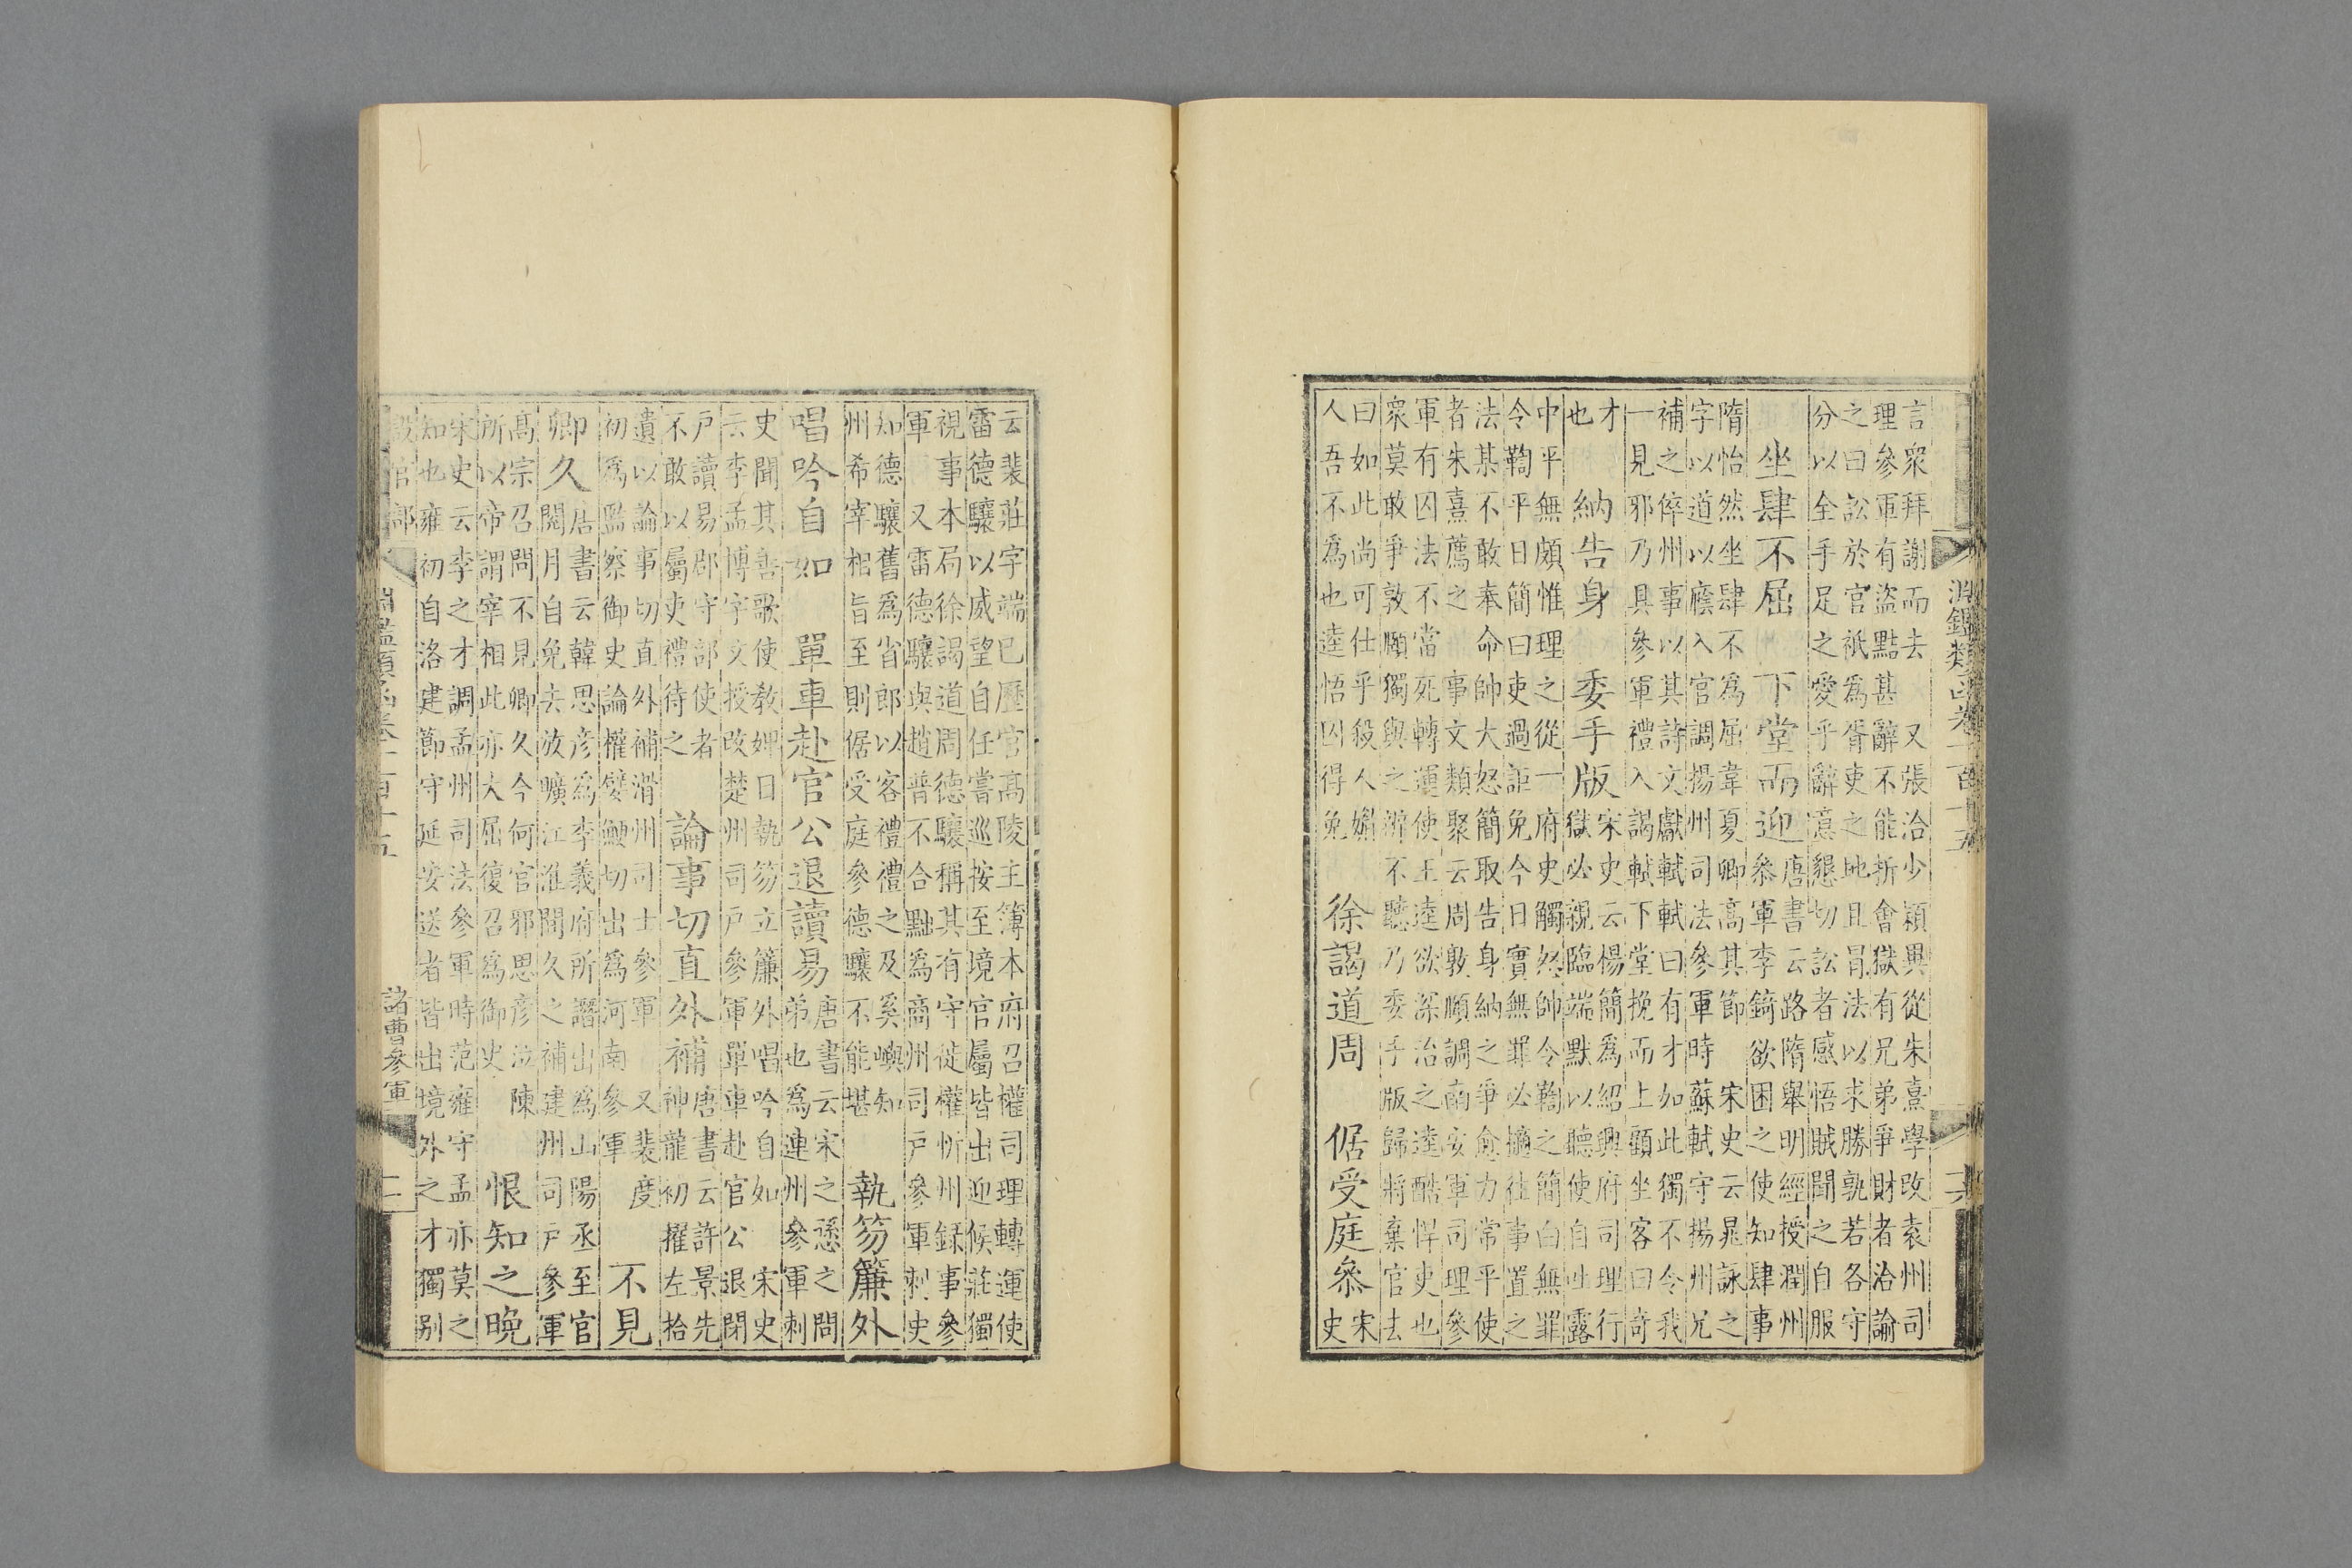 淵鑑類函卷一百十五
言衆拜謝而去 又張洽少穎異從朱熹學改袁州司
理參軍有盜黠甚辭不能折會獄有兄弟爭財者洽諭
之曰訟於官祇為胥吏之地且冒法以求勝孰若各守
分以全手足之愛乎辭意懇切訟者感悟賊聞之自服
坐肆不屈 下堂而迎
唐書云路隋舉明經授潤州
叅軍李錡欲困之使知肆事
隋怡然坐肆不為屈韋夏卿高其節 宋史云晁詠之
字以道以廕入官調揚州司法參軍時蘇軾守揚州兄
補之倅州事以其詩文獻軾軾曰有才如此獨不令我
一見邪乃具參軍禮入謁軾下堂挽而上顧坐客曰奇
才
也
納告身 委手版
宋史云楊簡為紹興府司理行
獄必親臨端默以聽使自吐露
中平無頗惟理之從一府史觸怒帥令鞫之簡白無罪
令鞫平日簡曰吏過詎免今日實無罪必擿往事置之
法某不敢奉命帥大怒簡取告身納之爭愈力常平使
者朱熹薦之 事文類聚云周敦頤調南安軍司理參
軍有囚法不當死轉運使王逵欲深治之逵酷悍吏也
衆莫敢爭敦頤獨與之辨不聽乃委手版歸將棄官去
曰如此尚可仕乎殺人媚
人吾不為也逵悟囚得免
徐謁道周 倨受庭叅
宋
史
云裴莊字端已歷官高陵主簿本府召權司理轉運使
雷德驤以威望自任嘗巡按至境官屬皆出迎候莊獨
視事本局徐謁道周德驤稱其有守徙權忻州錄事參
軍 又雷德驤與趙普不合黜為商州司戶參軍刺史
知德驤舊為省郎以客禮禮之及奚嶼知
州希宰相旨至則倨受庭參德驤不能堪
執笏簾外
唱吟自如 單車赴官公退讀易
唐書云宋之遜之問
弟也為連州參軍刺
史聞其善歌使教婢日執笏立簾外唱吟自如 宋史
云李孟博字文授改楚州司戶參軍單車赴官公退閉
戶讀易郡守部使者
不敢以屬吏禮待之
論事切直外補
唐書云許景先
神龍初擢左拾
遺以論事切直外補滑州司士參軍 又裴度
初為監察御史論權嬖鯁切出為河南參軍
不見
卿久
唐書云韓思彥為李義府所譖出為山陽丞至官
閱月自免去放曠江淮間久之補建州司戶參軍
高宗召問不見卿久今何官邪思彥泣陳
所以帝謂宰相此亦大屈復召為御史
恨知之晚
宋史云李之才調孟州司法參軍時范雍守孟亦莫之
知也雍初自洛建節守延安送者皆出境外之才獨别
設官部 淵鑑類函卷一百十五 諸曹參軍